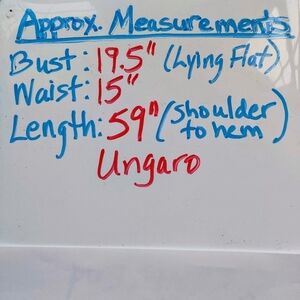 Approx. Measurements
Bust: 19.5" (Lying Flat)
Waist: 15"
Length: 59" (shoulder
to hem)
Ungaro